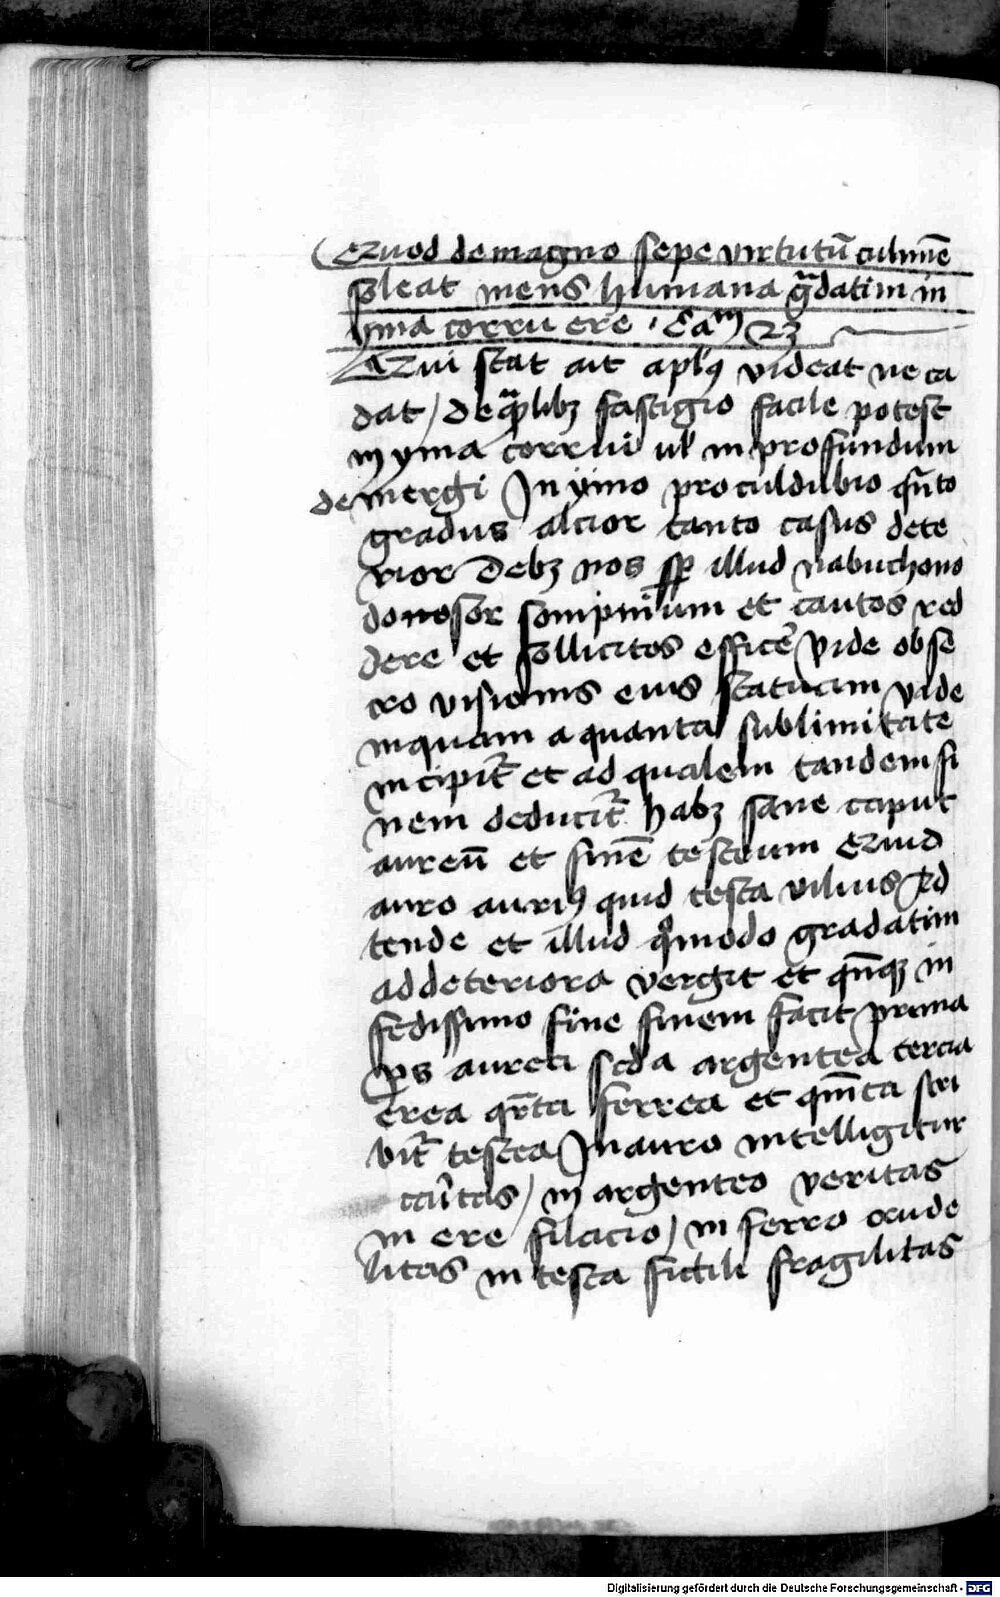 Quod de magno sepe virtutū culmīe
soleat mens humana gᵃdatim in
yma corruere · Caᵐ 23
Qui stat ait aplꝰ videat ne ca
dat / de qᵃlibꝫ fastigio facile potest
in yma corrui ul' in profundum
demergi In ymo proculdubio qᵃnto
gradus alcior tanto casus dete
rior Debꝫ nos sꝑ illud nabuchono
donosor sompnium et cautos red
dere et sollicitos efficẽ vide obse
cro visionis eius statuam vide
inquam a quanta sublimitate
incipit᷑ et ad qualem tandem fi
nem deducit᷑ habꝫ sane caput
aureū et finē testeum Quid
auro auriꝰ quid testa vilius At
tende et illud qᵒmodo gradatim
ad deteriora vergit et qn̄qꝫ in
fedissimo fine finem facit prima
ꝑs aurea scda argentea tercia
erea qᵃrta ferrea et qin̄ta scri
bit᷑ testea In auro intelligitur
caritas / in argenteo veritas
in ere filacio / in ferro crude
litas in testa fictili fragilitas
Digitalisierung gefördert durch die Deutsche Forschungsgemeinschaft - DFG